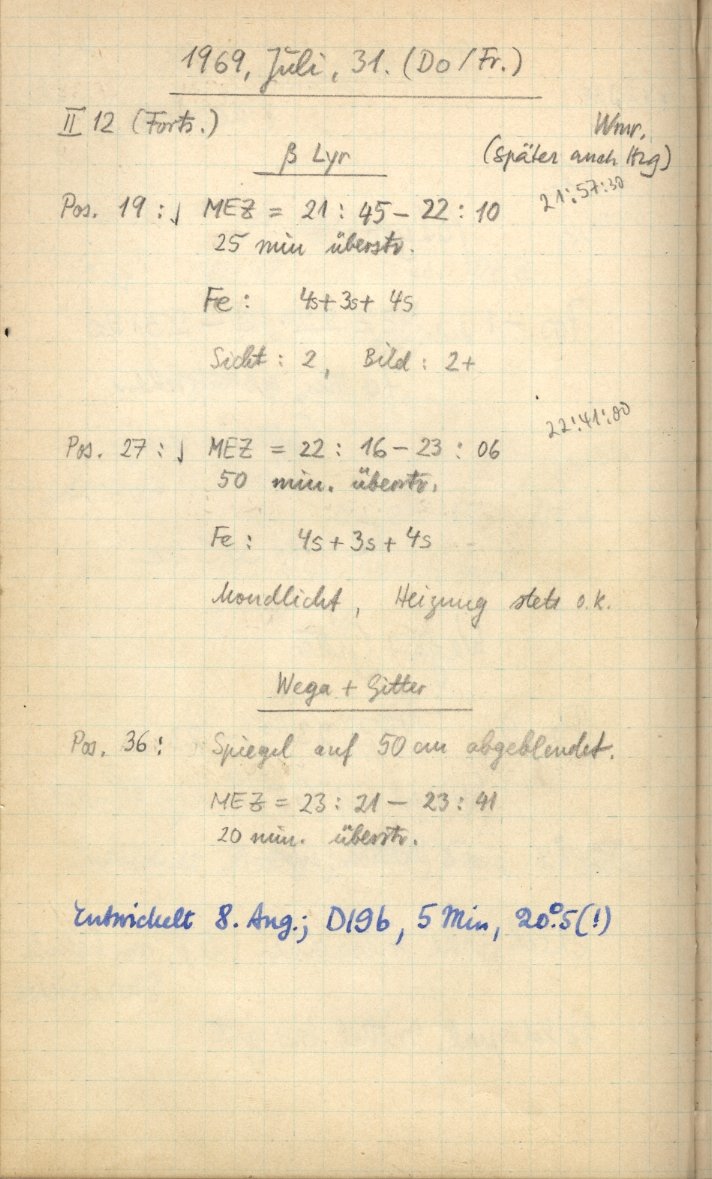 1969, Juli, 31. (Do/Fr.)
II 12 (Forts.)
Wmr.
β Lyr
(später auch Hzg)
21:57:30
Pos. 19 : ↓ MEZ = 21 : 45 – 22 : 10
25 min überstr.
Fe : 4s+3s+ 4s
Sicht : 2, Bild : 2+
22:41:00
Pos. 27 : ↓ MEZ = 22 : 16 – 23 : 06
50 min. überstr.
Fe : 4s+3s+4s
Mondlicht, Heizung stets o.k.
Wega + Gitter
Pos. 36 : Spiegel auf 50 cm abgeblendet.
MEZ = 23 : 21 – 23 : 41
20 min. überstr.
Entwickelt 8. Aug.; D19b, 5 Min, 20°.5(!)